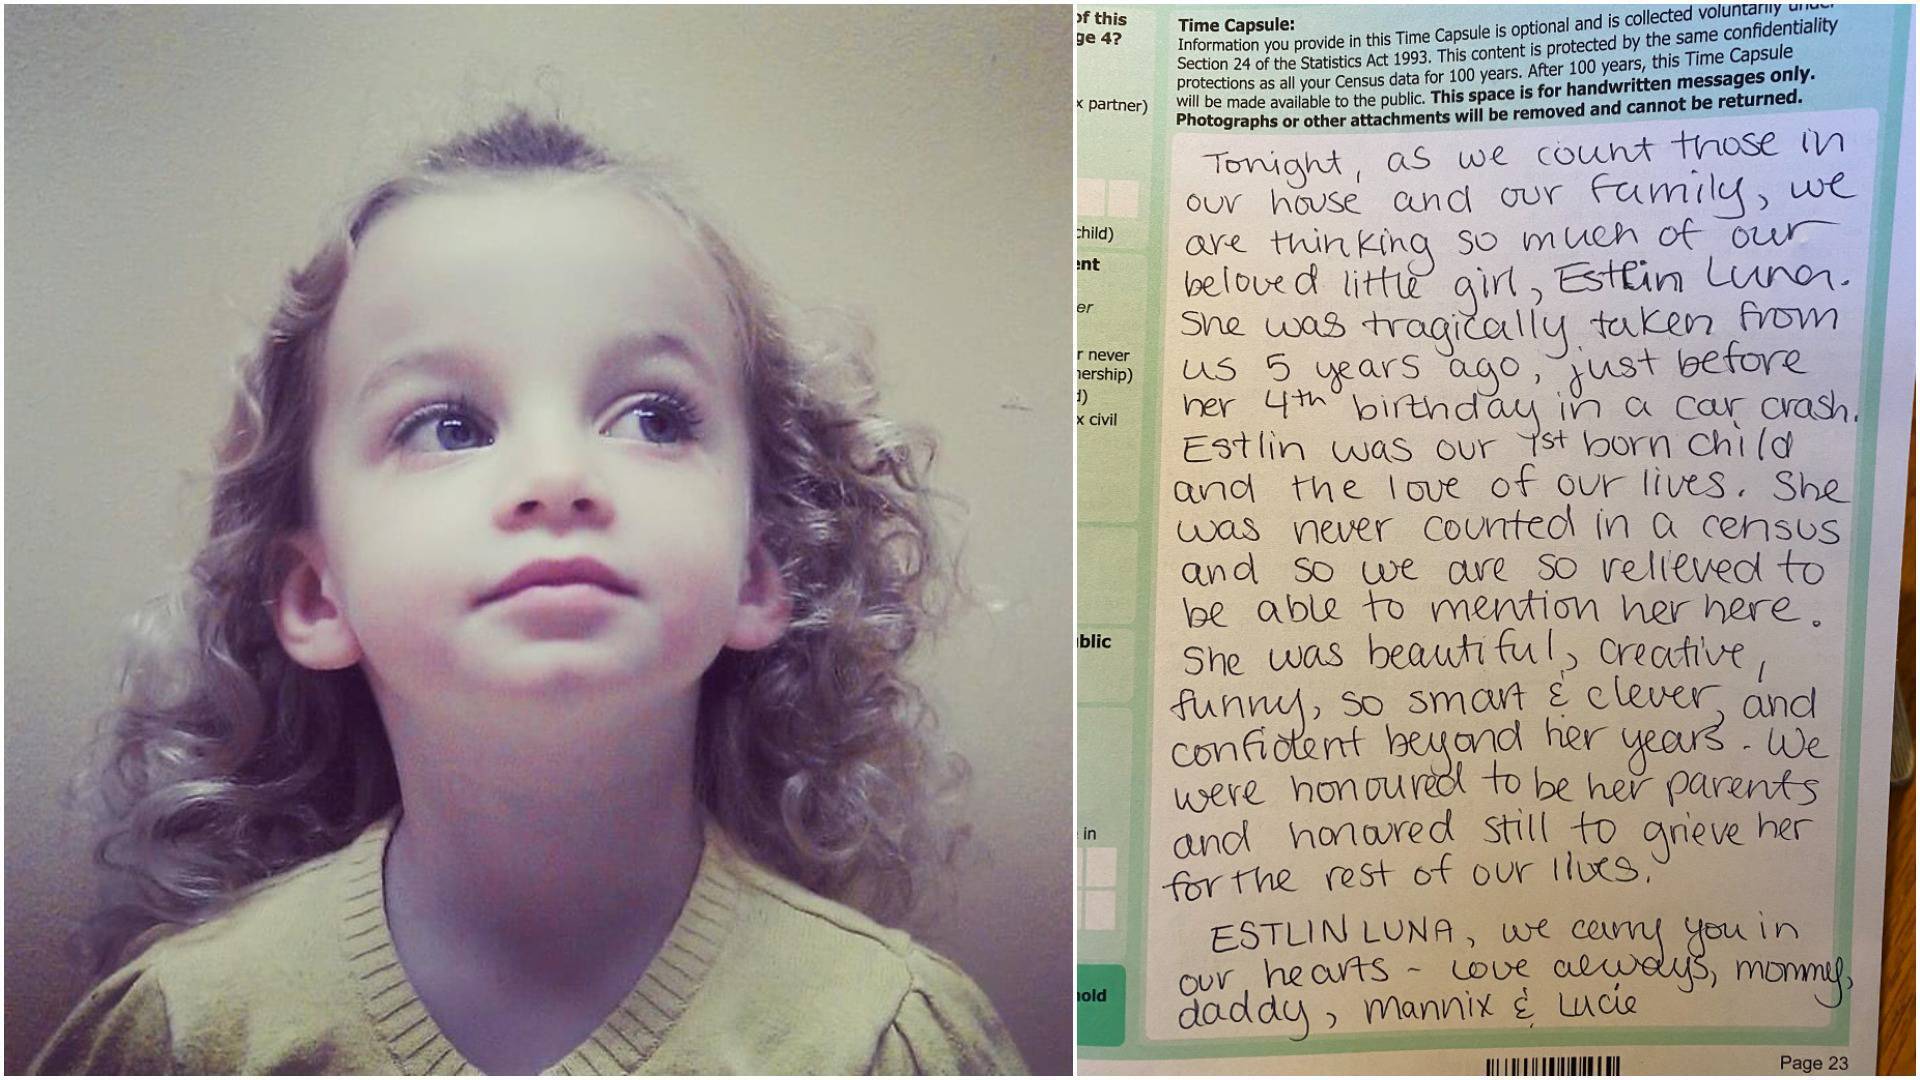 of this
ge 4?
x partner)
child)
ent
er
r never
nership)
d)
x civil
blic
in
old
Time Capsule:
Information you provide in this Time Capsule is optional and is collected voluntarily under
Section 24 of the Statistics Act 1993. This content is protected by the same confidentiality
protections as all your Census data for 100 years. After 100 years, this Time Capsule
will be made available to the public. This space is for handwritten messages only.
Photographs or other attachments will be removed and cannot be returned.
Tonight, as we count those in
our house and our family, we
are thinking so much of our
beloved little girl, Estlin Luna.
She was tragically taken from
us 5 years ago, just before
her 4th birthday in a car crash.
Estlin was our 1st born child
and the love of our lives. She
was never counted in a census
and so we are so relieved to
be able to mention her here.
She was beautiful, creative,
funny, so smart & clever, and
confident beyond her years. We
were honoured to be her parents
and honoured still to grieve her
for the rest of our lives.
ESTLIN LUNA, we carry you in
our hearts - love always, mommy,
daddy, mannix & Lucie
Page 23